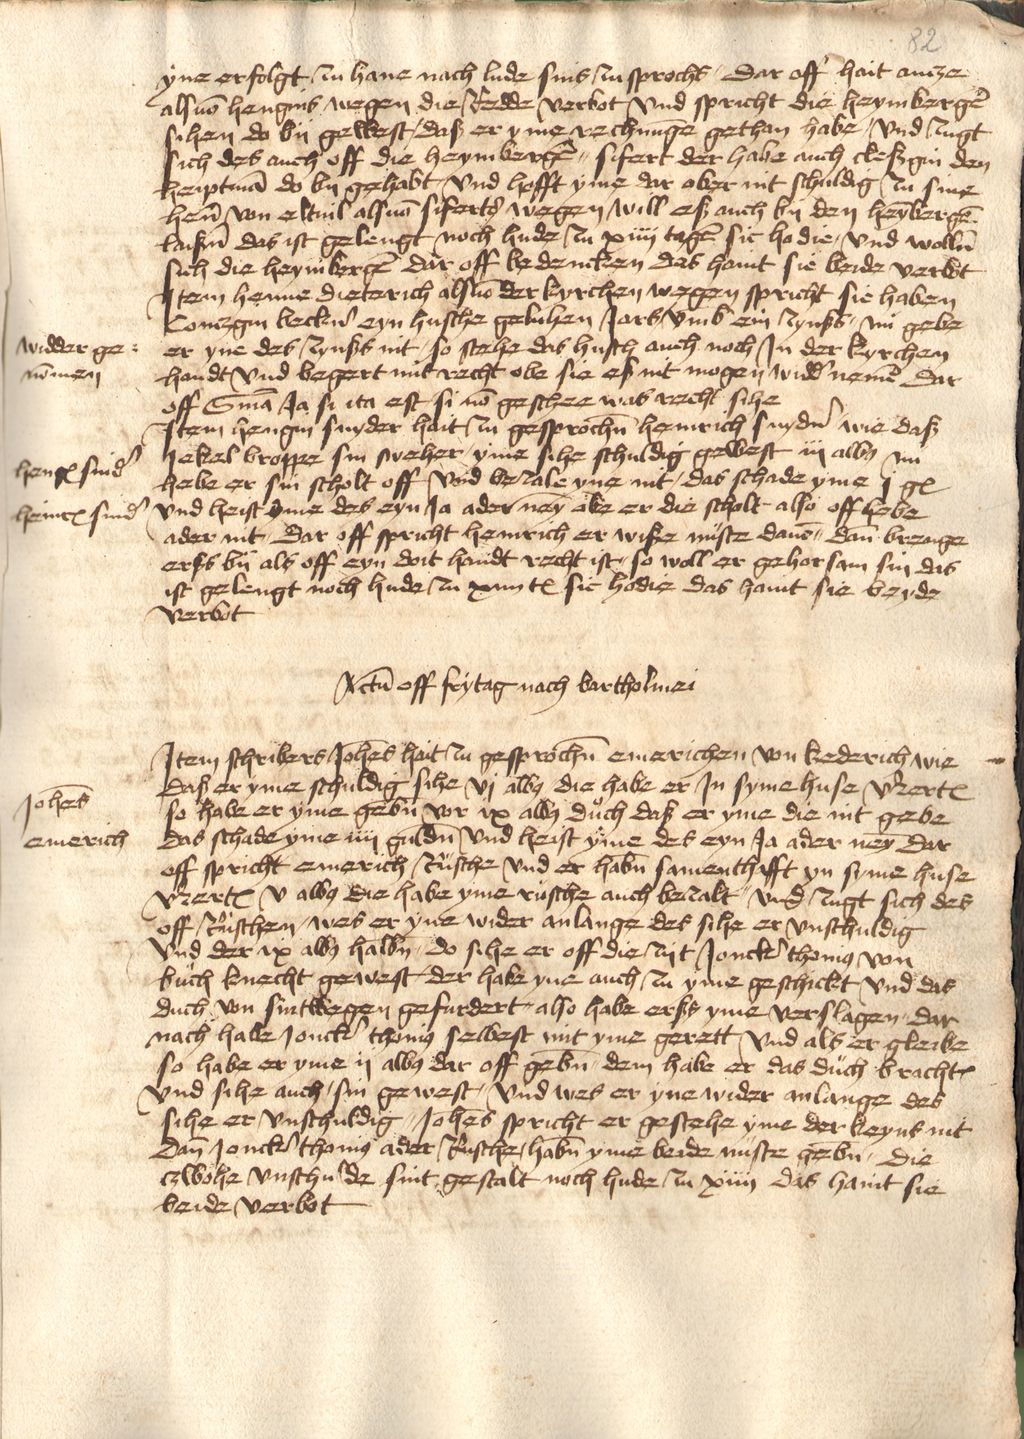 82
yne erfolgt zu hane nach lude sins zu sprochs Dar off hait antze
alsuō hengins wegen die Redde verbot Und spricht die heymberg͛
sihen do bij gewest daß er yme rechnu̅ge gethan habe Und zugt
sich des auch off die heymberg͛ Sifert der habe auch cleßgin den
heuptma̅ do bij gehabt Und hofft yme dar ober nit schuldig zu sine
hen̅ von eltuil alsuō siferts wegen will eß auch bij den hey̅berg͛
laißin̅ das ist gelengt noch hude zu xiiij tag͛ sic hodie Und wollu̅
sich die heymberg͛ dar off bedencken das hant sie beide verbot
Item henne dieterich alsuō der kyrchen wegen spricht sie haben
Contzgin becker eyn husche geluhen Jars vmb ein zynß nu gebe
er yne des zynß nit so stehe das husch auch noch In der kyrchen
widder ge:
no̅men
handt Und begert mit recht obe sie eß nit mogen widd͛ neme̅ Dar
off Sn̅ia Ja si ita est si no̅ geschee was recht sihe
Item hengin snyder hait zu gesproch̅n heinrich snyd͛ wie daß
Jekel broppe sin sweher yme sihe schuldig gewest iij albꝰ nu
heng͛ snid͛
hebe er sin scholt off Und bezale yne nit das schade yme j gꝭ
heinr͛ snid͛
Und heist yme des eyn Ja ader ney̅ obe er die scholt also off hebe
ader nit Dar off spricht heinrich er wiße nuste dauo̅ Dan̅ brenge
erß bij als off eyn doit handt recht ist so woll er gehorsam sin das
ist gelengt noch hude zu xiiij tꝭ sic hodie das hant sie beyde
verbot
Actu̅ off frytag nach bartholmei
Item schribers Joh̅es hait zu gesproch̅n emerichen von kederich wie
daß er yme schuldig sihe vj albꝰ die habe er In syme huse v͛zertꝭ
Joh̅es
emerich
so habe er yme geb̅n vor ix albꝰ duch daß er yme die nit gebe
das schade yme iiij guld̅n Und heist yme des eyn Ja ader ney̅ Dar
off spricht emerich Rusche Und er hab̅n samenthafft yn syme huse
v͛zertꝭ v albꝰ die habe yme rusche auch bezalt Und zugt sich des
off Ruschen wes er yne wider anlange des sihe er vnschuldig
Und der ix albꝰ halb̅n do sihe er off die zijt Jonck͛ thonius von
buch knecht gewest der habe yne auch zu yme geschickt Und das
duch von sintwegen gefurdert also habe erß yme verslagen dar
nach habe Jonck͛ thonius selbest mit yme gerett Und als er gleube
so habe er yme ij albꝰ dar off geb̅n dem habe er das duch brachtꝭ
Und sihe auch sin gewest Und wes er yne wider anlange des
sihe er vnschuldig Joh̅es spricht er gestehe yme der keyns nit
Dan̅ Jonck͛ thonius ader Rusche hab̅n yme beide nuste geb̅n Die
czwohe vnschulde sint gestalt noch hude zu xiiij das hant sie
beide verbot